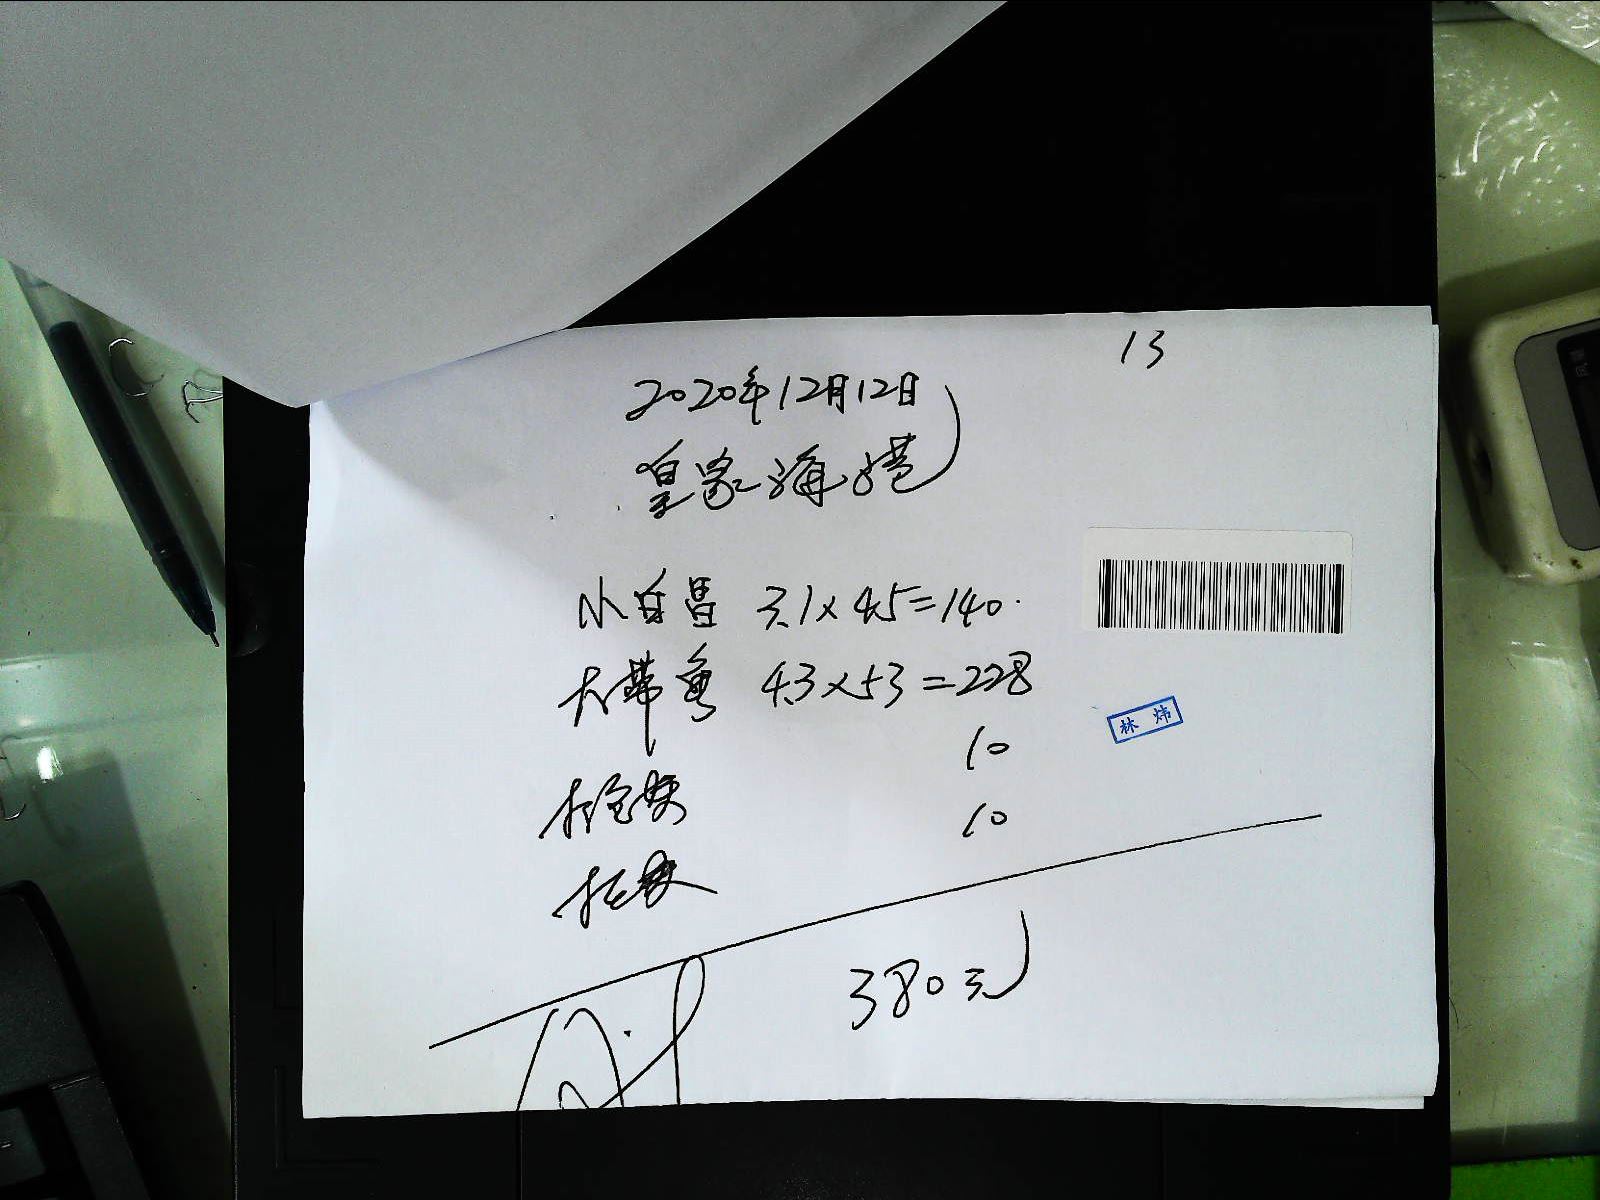 13
2020年12月12日
皇家海港
小白昌 3.1×45=140.
大带鱼 4.3×53=228
10
10
林炜
380元